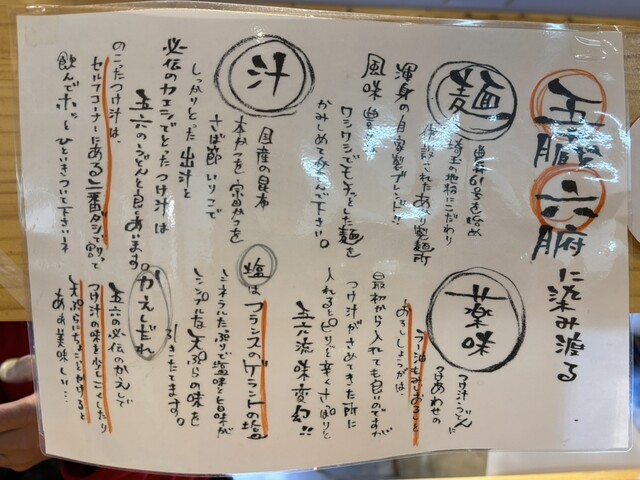 五臓六腑に染み渡る
麺
農林61号を始め
埼玉の地粉にこだわり
併設されたあがり製麺所
渾身の自家製ブレンド!!
風味豊かで
ワシワシでモチっとした麺を
かみしめて楽しんで下さい。
汁
国産の昆布
本かつを・宗田かつを
さば節・いりこで
しっかりとだ出汁と
必伝のカエシでとたつけ汁は
五六のうどんと良くあいます。
のこったつけ汁は、
セルフコーナーにある二番ダシでわって
飲んでホッとひといきついて下さいネ
薬味
つけ汁・うどんに
つけあわせの
ラー油もみじおろしと
おろししょうがは、
最初から入れても良いのですが
つけ汁がさめてきた所に
入れるとピリッと辛くさっぱりと
五六流味変多!!
塩はフランスのゲラントの塩
ミネラルたっぷりで塩味と旨味が
シンプルな天ぷらの味を
引きたてます。
かえしだれ
五六の必伝のかえしで
つけ汁の味を少しこくしたり
天ぷらにちょこっとかけると
あぁ美味しい…